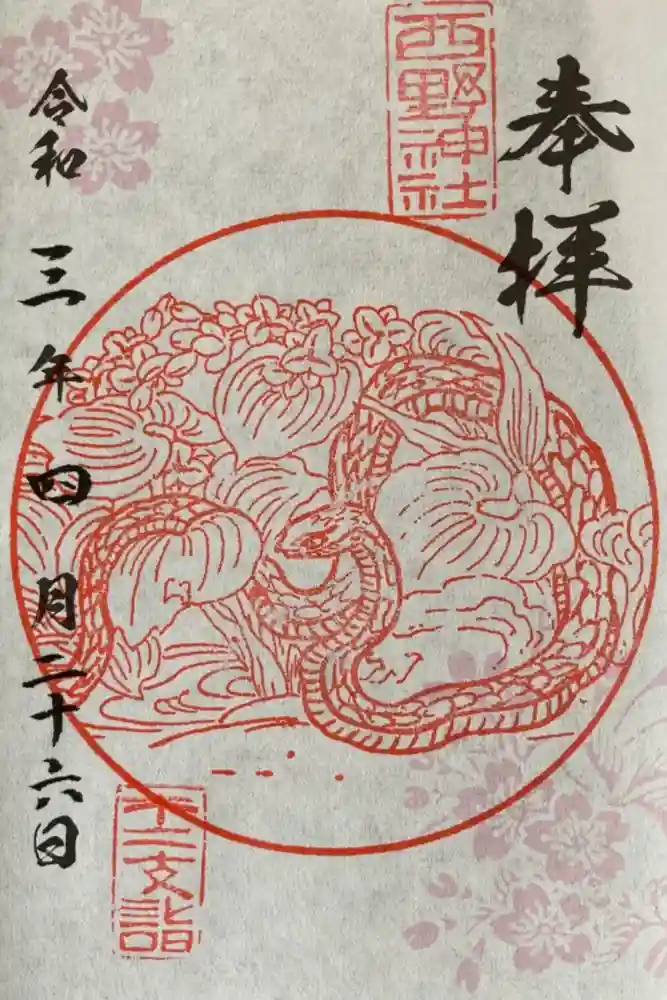 奉拝
西野神社
十二支詣
令和三年四月二十六日